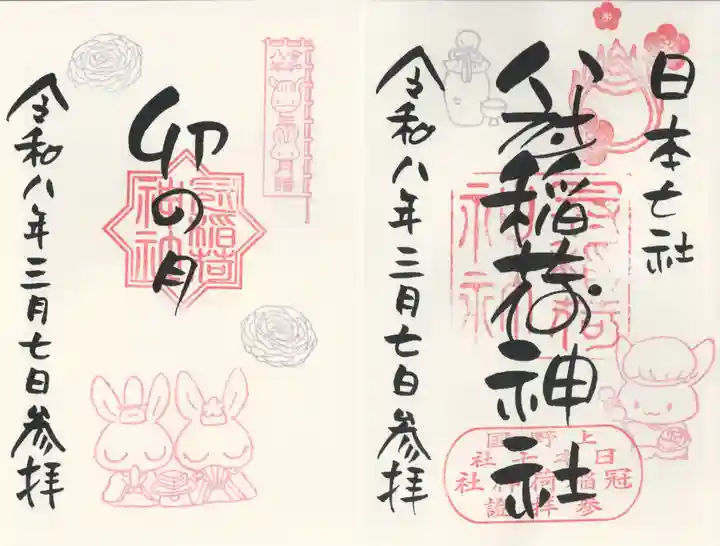 日本七社
冠稲荷神社
令和八年三月七日参拝
冠稲荷
神社
上野国
日本七社
冠稲荷神社
令和八年
卯の月
冠稲荷
神社
令和八年三月七日参拝